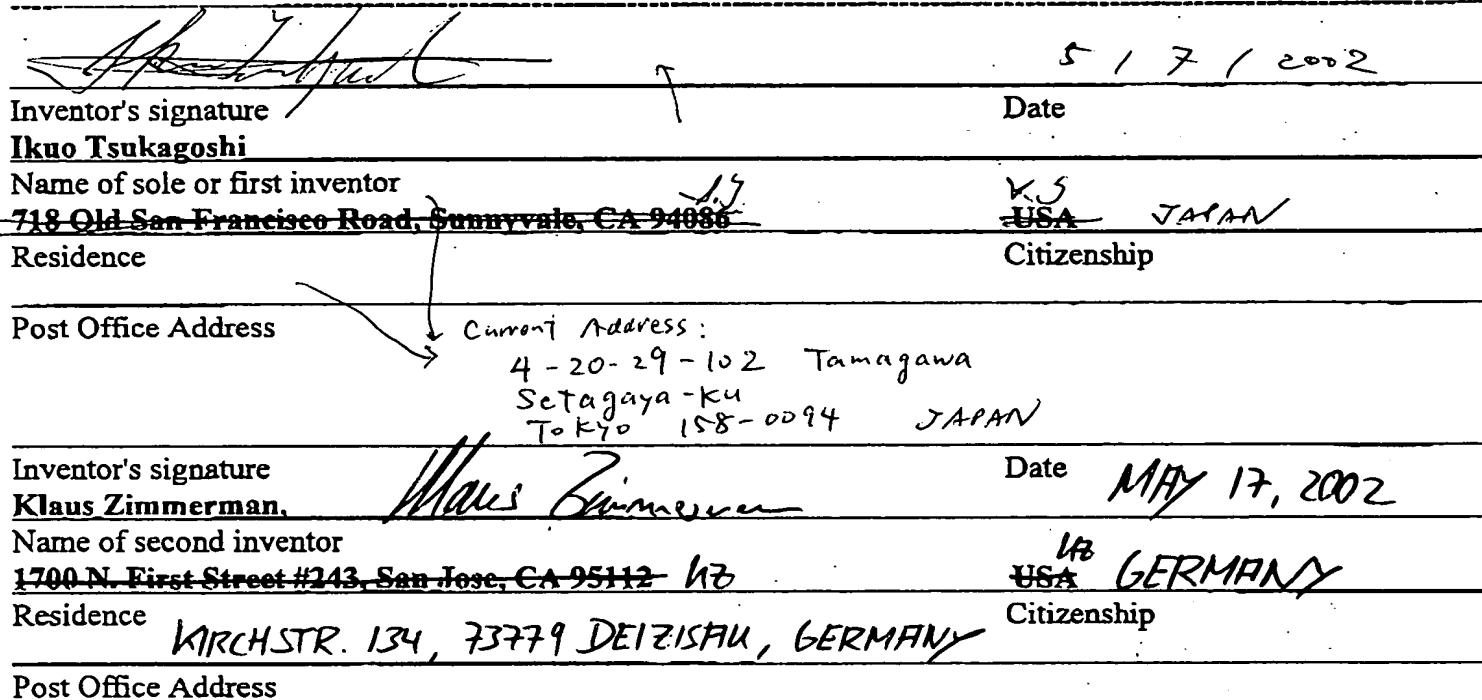 5 / 7 / 2002
Inventor's signature Date
Ikuo Tsukagoshi
Name of sole or first inventor
718 Old San Francisco Road, Sunnyvale, CA 94086 USA JAPAN
Residence Citizenship
Post Office Address Current Address:
4-20-29-102 Tamagawa
Setagaya-Ku
Tokyo 158-0094 JAPAN
Inventor's signature Date MAY 17, 2002
Klaus Zimmerman, Klaus Zimmerman
Name of second inventor
1700 N. First Street #243, San Jose, CA 95112 KZ USA KZ GERMANY
Residence KIRCHSTR. 134, 73779 DEIZISAU, GERMANY Citizenship
Post Office Address